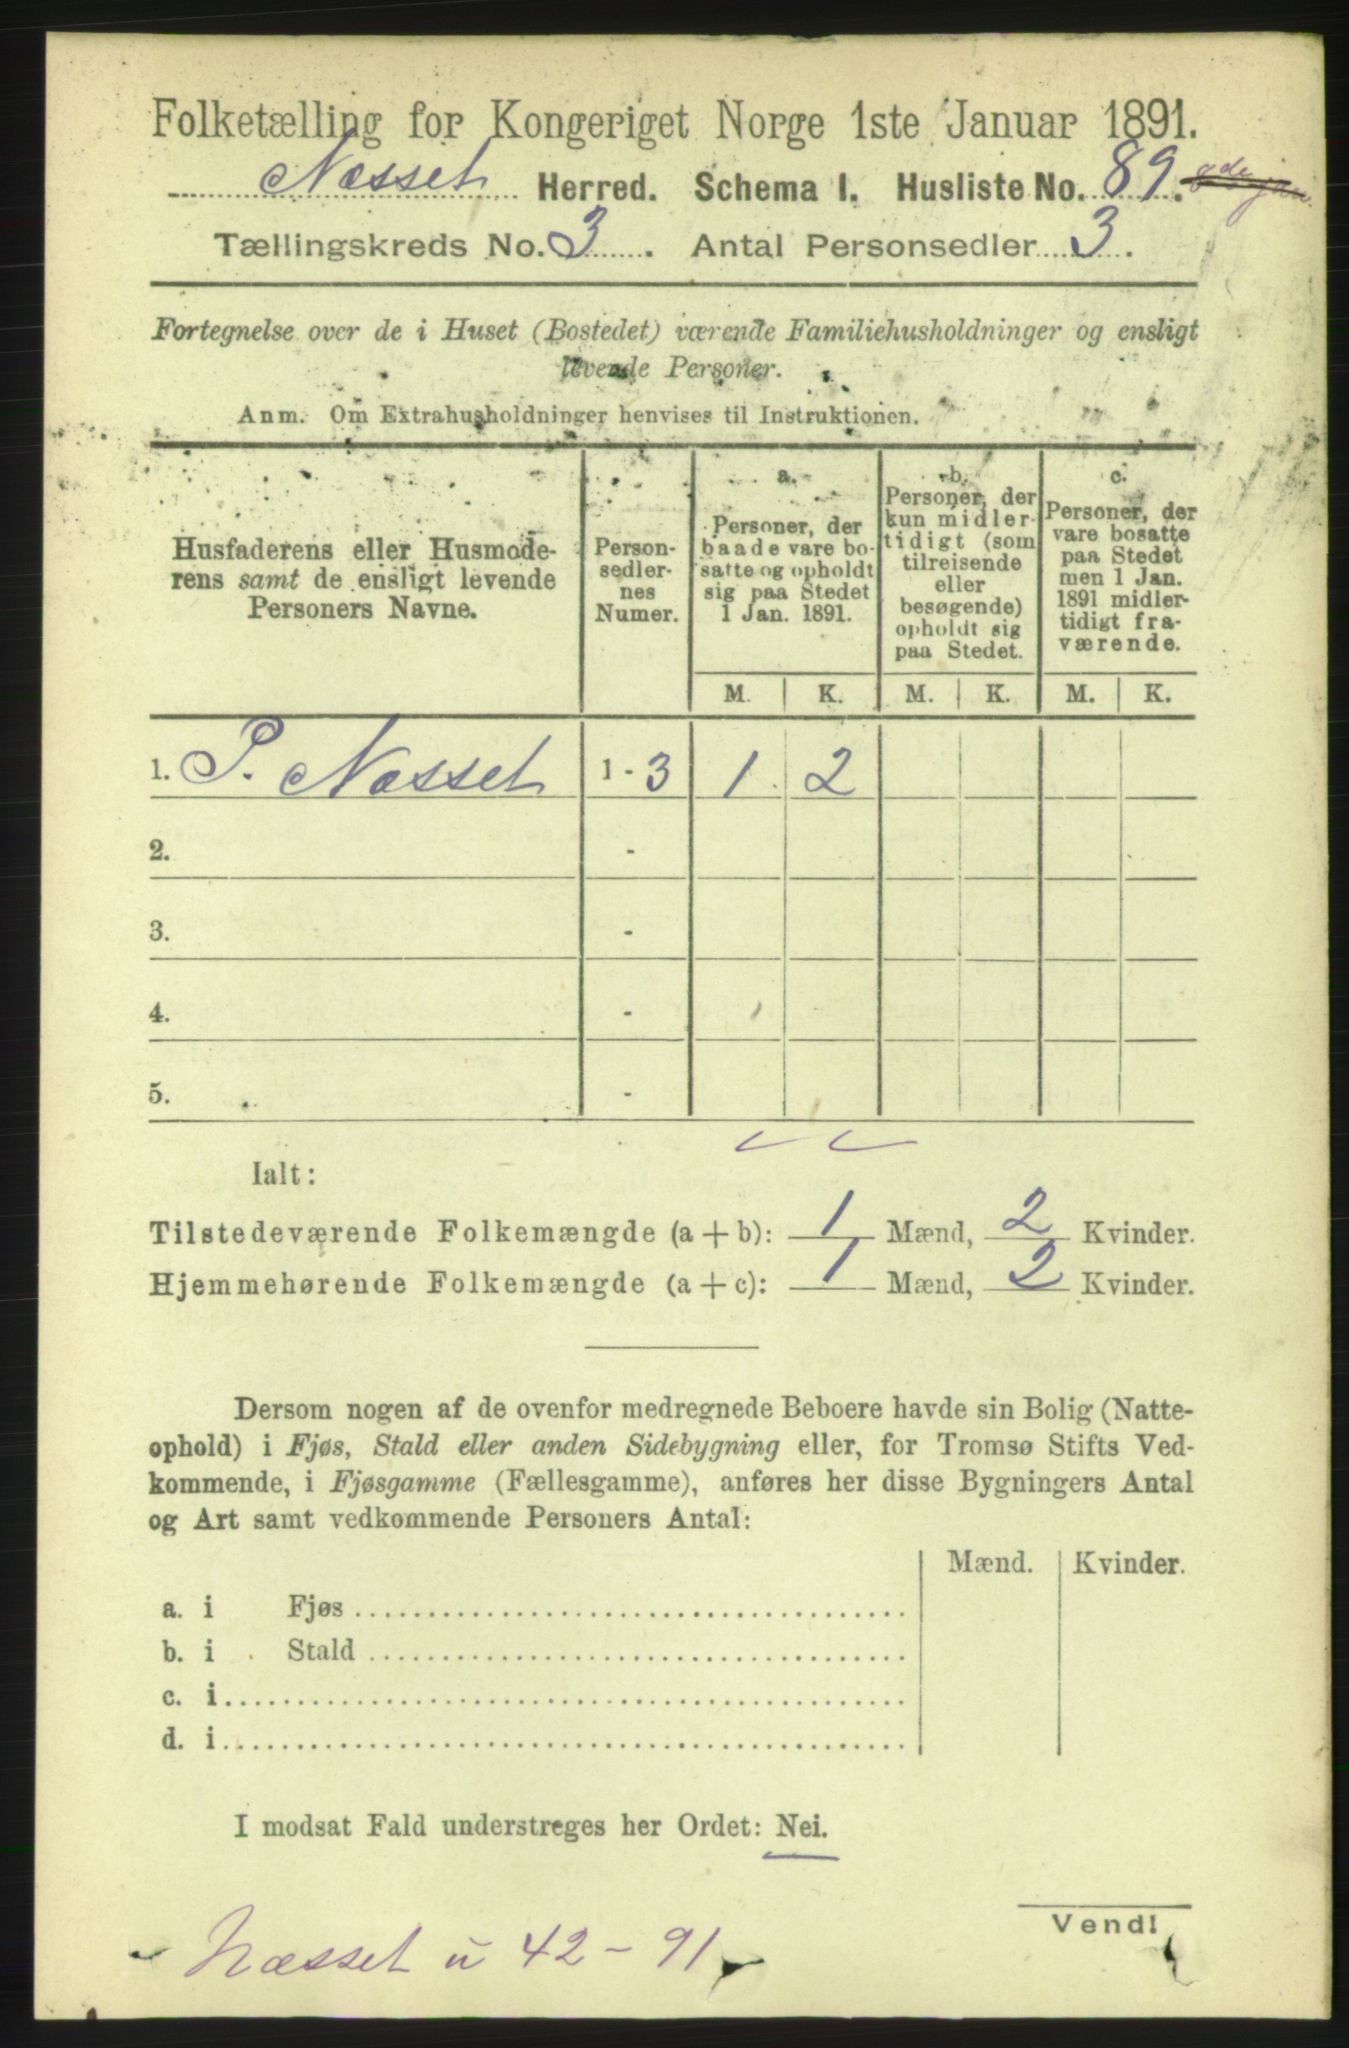 Folketælling for Kongeriget Norge 1ste Januar 1891.
Næsset Herred. Schema I. Husliste No. 89.
Tællingskreds No. 3. Antal Personsedler 3.
Fortegnelse over de i Huset (Bostedet) værende Familiehusholdninger og ensligt
levende Personer.
Anm. Om Extrahusholdninger henvises til Instruktionen.
Husfaderens eller Husmode-
rens samt de ensligt levende
Personers Navne.
Person-
sedler-
nes
Numer.
a.
Personer, der
baade vare bo-
satte og opholdt
sig paa Stedet
1 Jan. 1891.
b.
Personer, der
kun midler-
tidigt (som
tilreisende
eller
besøgende)
opholdt sig
paa Stedet.
c.
Personer, der
vare bosatte
paa Stedet
men 1 Jan.
1891 midler-
tidigt fra-
værende.
M. K. M. K. M. K.
1. P. Næsset 1 - 3 1 2
2. -
3. -
4. -
5. -
Ialt:
Tilstedeværende Folkemængde (a + b): 1 Mænd, 2 Kvinder.
Hjemmehørende Folkemængde (a + c): 1 Mænd, 2 Kvinder.
Dersom nogen af de ovenfor medregnede Beboere havde sin Bolig (Natte-
ophold) i Fjøs, Stald eller anden Sidebygning eller, for Tromsø Stifts Ved-
kommende, i Fjøsgamme (Fællesgamme), anføres her disse Bygningers Antal
og Art samt vedkommende Personers Antal:
Mænd. Kvinder.
a. i Fjøs
b. i Stald
c. i
d. i
I modsat Fald understreges her Ordet: Nei.
Vend!
Næsset ū 42 - 91